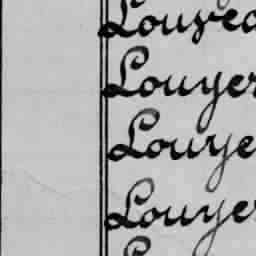 Louvea
Louyer
Louye
Louyer